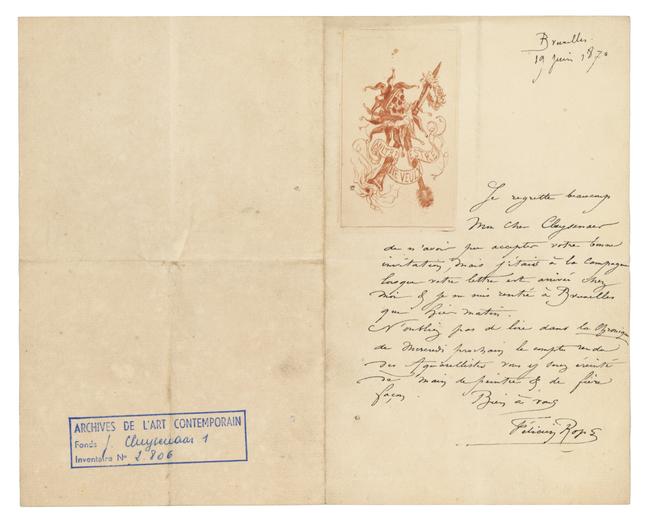 Bruxelles
19 juin 1870
AULTRE
NE VEUX
Je regrette beaucoup
Mon cher Cluysenaer
de n'avoir pu accepter votre bonne
invitation, mais j'étais à la campagne
lorsque votre lettre est arrivée chez
moi & je ne suis rentré à Bruxelles
que hier matin.
N'oubliez pas de lire dans la Chronique
de Mercredi prochain le compte rendu
des Aquarellistes vous y serez éreinté
de main de peintre & de fière
façon.
Bien à vous
Félicien Rops
ARCHIVES DE L'ART CONTEMPORAIN
Fonds J. Cluysenaar 1
Inventaire N° 2806